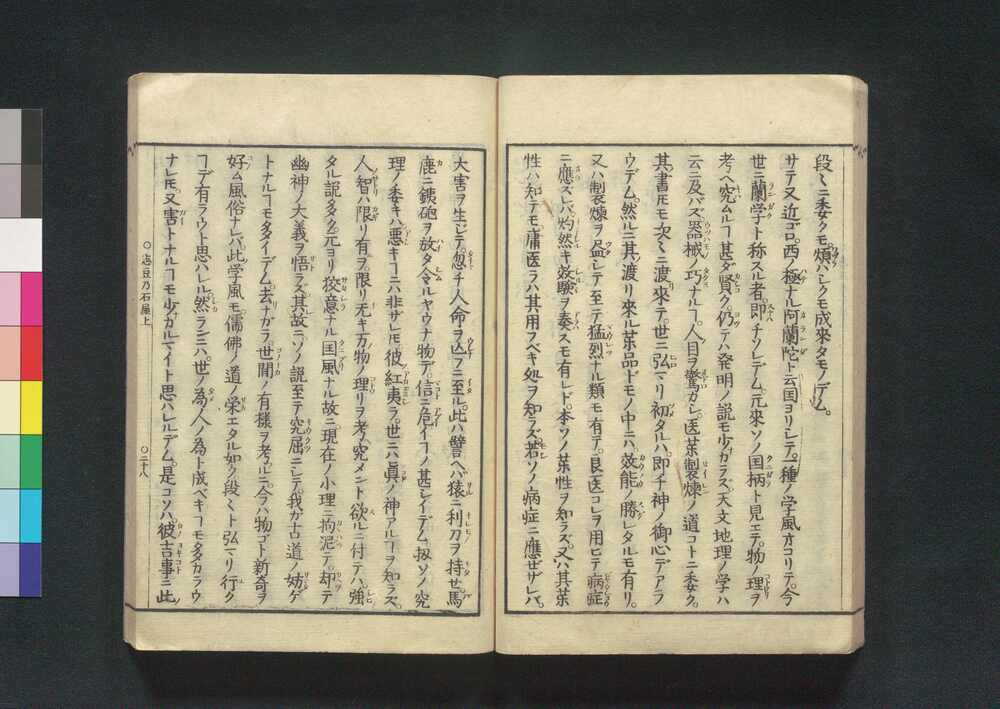 段々ニ委クモ煩ハシクモ成來タモノデム。
サテ又近ゴロ。西ノ極ナル阿蘭陀ト云国ヨリシテ。一種ノ学風オコリテ。今
世ニ蘭学ト称スル者。即チソレデム。元來ソノ国柄ト見エテ。物ノ理ヲ
考ヘ究ムルヿ甚ダ賢ク。仍テハ発明ノ説モ少カラズ。天文地理ノ学ハ
云ニ及バズ。器械ノ巧ナルヿ。人目ヲ驚カシ。医薬製煉ノ道コトニ委ク。
其書𪜈モ次々ニ渡リ來テ。世ニ弘マリ初タルハ。即チ神ノ御心デアラ
ウデム。然ルニ其渡リ來ル薬品𪜈モノ中ニハ。效能ノ勝レタルモ有リ。
又ハ製煉ヲ盈シテ。至テ猛烈ナル類モ有テ。良医コレヲ用ヒテ。病症
ニ應ズレバ。灼然キ效驗ヲ奏スモ有レド。本ソノ薬性ヲ知ラズ。又ハ其薬
性ハ知テモ。庸医ラハ其用フベキ処ヲ知ラズ。若ソノ病症ニ應ゼザレバ。
大害ヲ生ジテ。忽チ人命ヲ亡フニ至ル。此ハ譬ヘバ猿ニ利刀ヲ持セ。馬
鹿ニ銕砲ヲ放タ令ルヤウナ物デ。信ニ危イヿノ甚シイデム。扨ソノ究
理ノ委キハ悪キヿニハ非ザレ𪜈。彼紅夷ラ。世ニハ眞ノ神アルヿヲ知ラズ。
人智ハ限リ有ヲ。限リ无キ万物ノ理リヲ考究メント欲ルニ付テハ。強
タル説多ク。元ヨリ狡意ナル国風ナル故ニ。現在ノ小理ニ拘泥テ。却テ
幽神ノ大義ヲ悟ラズ。其故ニソノ説至テ究屈ニシテ。我ガ古道ノ妨ゲ
トナルヿモ多イデム。去ナガラ。世間ノ有様ヲ考ルニ。今ハ物ゴト新奇ヲ
好ム風俗ナレバ。此学風モ。儒佛ノ道ノ栄エタル如ク。段々ト弘マリ行ク
ヿデ有ラウト思ハレル。然ランニハ。世ノ為人ノ為ト成ベキヿモ多カラウ
ナレ𪜈。又害トナルヿモ少カルマイト思ハレルデム。是コソハ。彼吉事ニ此
〇志豆乃石屋上
〇二十八